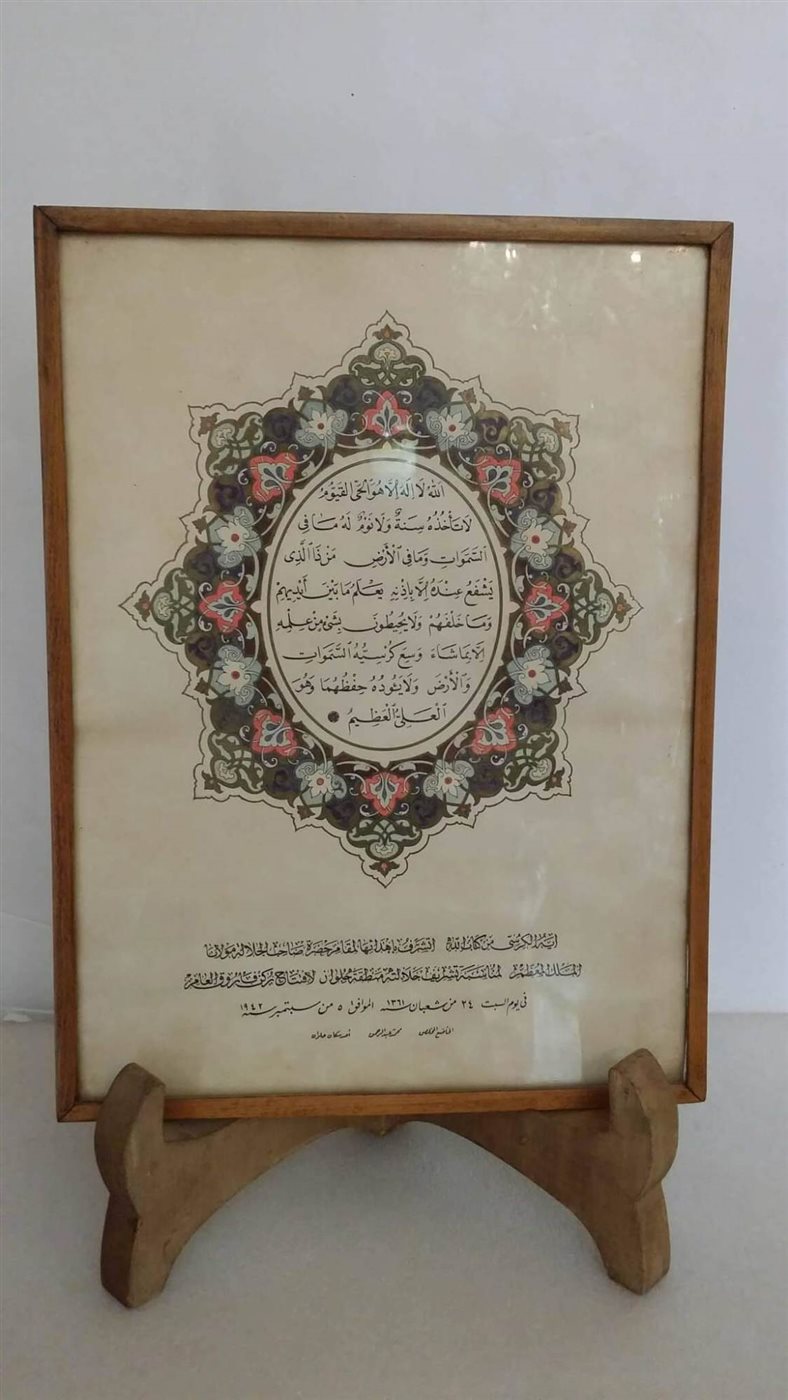 اَللّٰهُ لَا إِلٰهَ إِلَّا هُوَ الْحَيُّ الْقَيُّوْمُ
لَا تَأْخُذُهُ سِنَةٌ وَلَا نَوْمٌ لَهُ مَا فِي
السَّمٰوَاتِ وَمَا فِي الْأَرْضِ مَنْ ذَا الَّذِى
يَشْفَعُ عِنْدَهُ إِلَّا بِإِذْنِهِ يَعْلَمُ مَا بَيْنَ أَيْدِيهِمْ
وَمَا خَلْفَهُمْ وَلَا يُحِيطُونَ بِشَىْءٍ مِنْ عِلْمِهِ
إِلَّا بِمَا شَاءَ وَسِعَ كُرْسِيُّهُ السَّمٰوَاتِ
وَالْأَرْضَ وَلَا يَئُودُهُ حِفْظُهُمَا وَهُوَ
الْعَلِىُّ الْعَظِيمُ
آية الكرسى من كتاب الله أتشرف بإهدائها لمقام حضرة صاحب الجلالة مولانا
الملك المعظم لمناسبة تشريف جلالته منطقة حلوان لافتتاح مركز فاروق العام
فى يوم السبت ٢٤ من شعبان سنة ١٣٦١ الموافق ٥ من سبتمبر سنة ١٩٤٢
الخاضع المخلص محمد عبد الرحمن